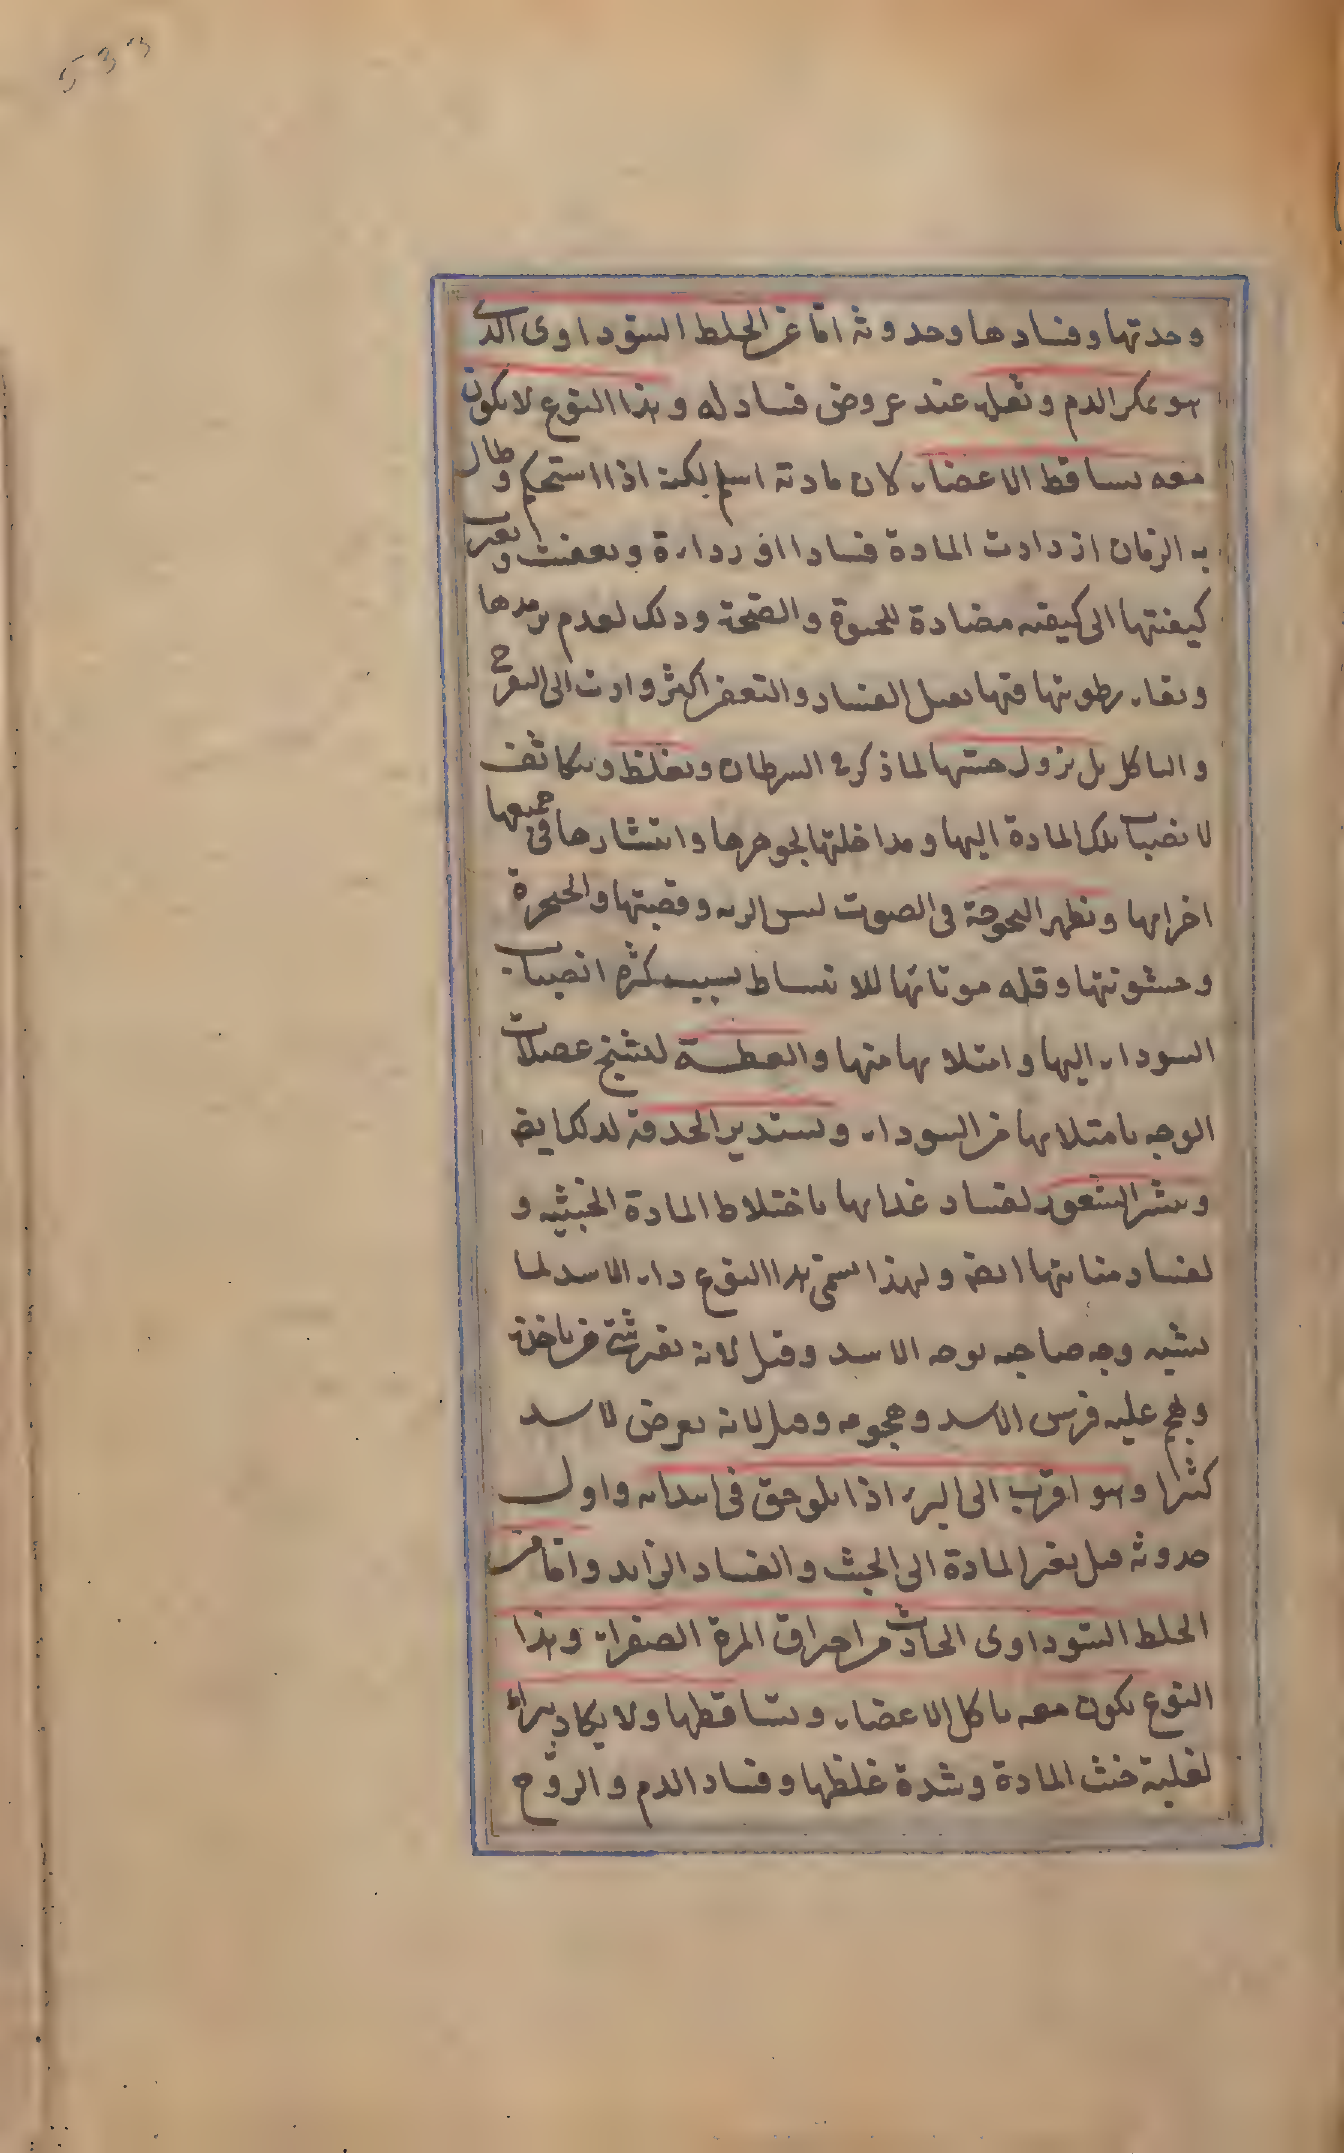 533
وحدتها وفسادها وحدوثه اما عن الخلط السوداوى الذى
هو عكر الدم وثفله عند عروض فساد له وهذا النوع لا يكون
معه تساقط الاعضاء لان مادته اسلم لكنه اذا استحكم وطال
به الزمان ازدادت المادة فسادا او رداءة وتعفنت وتغيرت
كيفيتها الى كيفيه مضادة للحيوة والصحة وذلك لعدم ترمدها
وبقاء رطوبتها فيها تعمل الفساد والتعفن اكثر وادت الى التقرح
والتاكل بل يزول حسها لما ذكر فى السرطان ويغلظ ويتكاثف
لانصباب تلك المادة اليها ومداخلتها لجوهرها وانتشارها فى جميعها
اجزايها ويظهر البحوحة فى الصوت ليبس الريه وقصبتها والحنجرة
وخشونتها وقله مواتاتها للانبساط بسبب كثرة انصباب
السوداء اليها وامتلايها منها والعطسة لتشنج عضلات
الوجه بامتلايها من السوداء ويستدير الحدقة لذلك ايضا
وينتثر الشعور لفساد غذايها باختلاط المادة الخبيثه و
لفساد منابتها ايضا ولهذا يسمى هذا النوع داء الاسد لما
يشبه وجه صاحبه بوجه الاسد وقيل لانه يفترس من ياخذه
ويهجم عليه فرس الاسد وهجومه وقيل لانه يعرض للاسد
كثيرا وهو اقرب الى البرء اذا تلوحق فى ابتدايه واول
حدوثه قبل تغير المادة الى الخبث والفساد الزايد واما من
الخلط السوداوى الحادث من احتراق المرة الصفراء وهذا
النوع يكون معه تاكل الاعضاء وتساقطها ولا يكاد يبراء
لغلبة خبث المادة وشدة غلظها وفساد الدم والروح